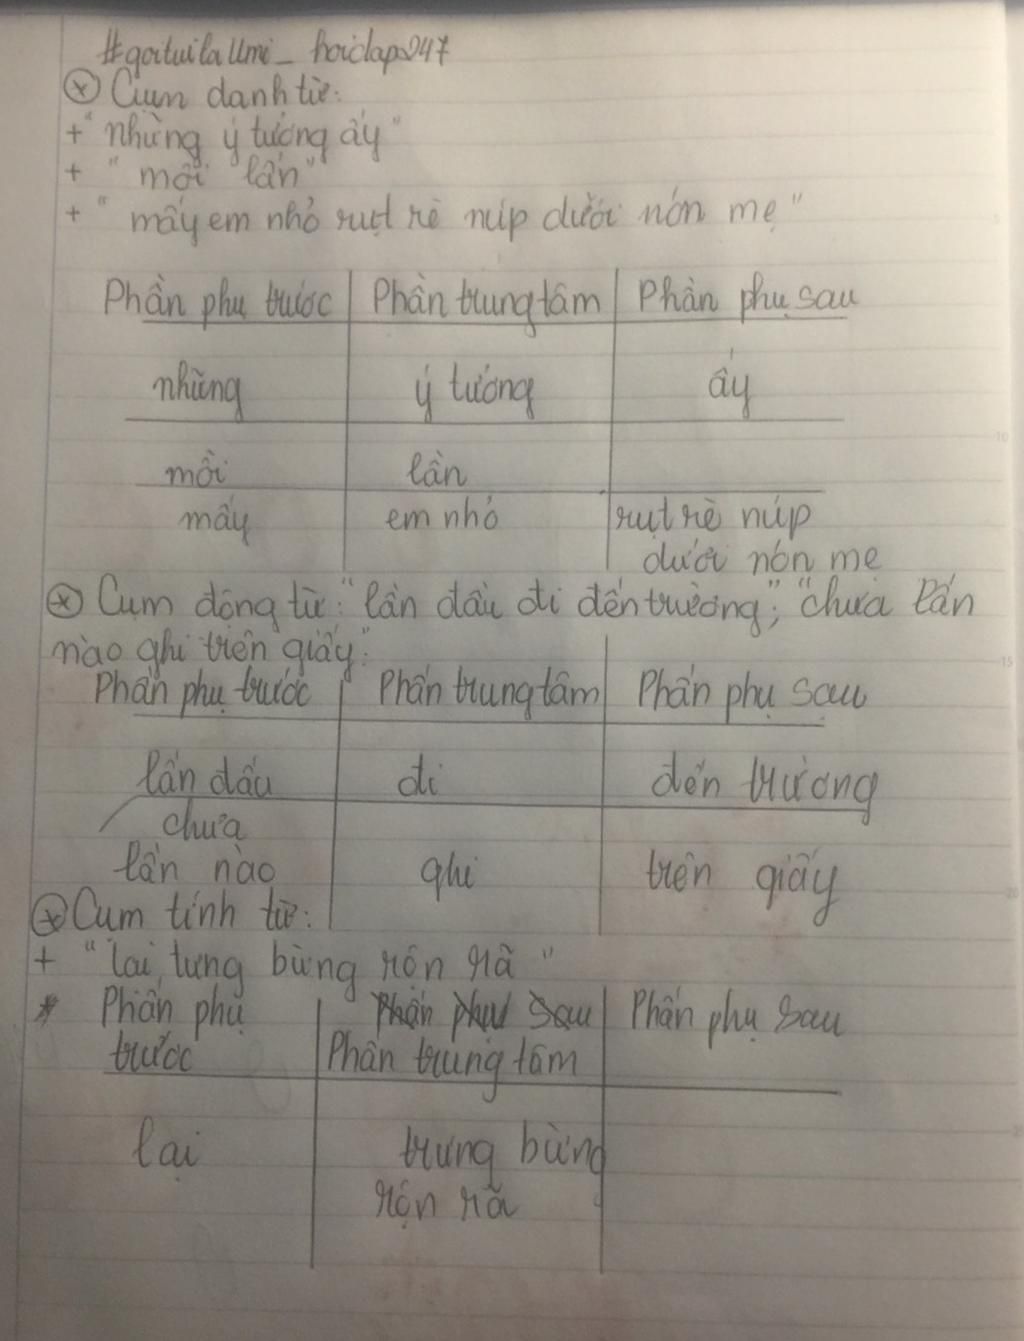 #goituilaUmi_hoidap247
Cụm danh từ:
+ "những ý tưởng ấy"
+ "mỗi lần"
+ "mấy em nhỏ rụt rè núp dưới nón mẹ"
Phần phụ trước | Phần trung tâm | Phần phụ sau
những | ý tưởng | ấy
mỗi | lần
mấy | em nhỏ | rụt rè núp
dưới nón mẹ
Cụm động từ: "lần đầu đi đến trường"; "chưa lần
nào ghi trên giấy":
Phần phụ trước | Phần trung tâm | Phần phụ sau
lần đầu | đi | đến trường
chưa
lần nào | ghi | trên giấy
Cụm tính từ:
+ "lại tưng bừng rộn rã"
* Phần phụ | Phần phụ sau | Phần phụ sau
trước | Phần trung tâm
lại | trưng bừng
rộn rã